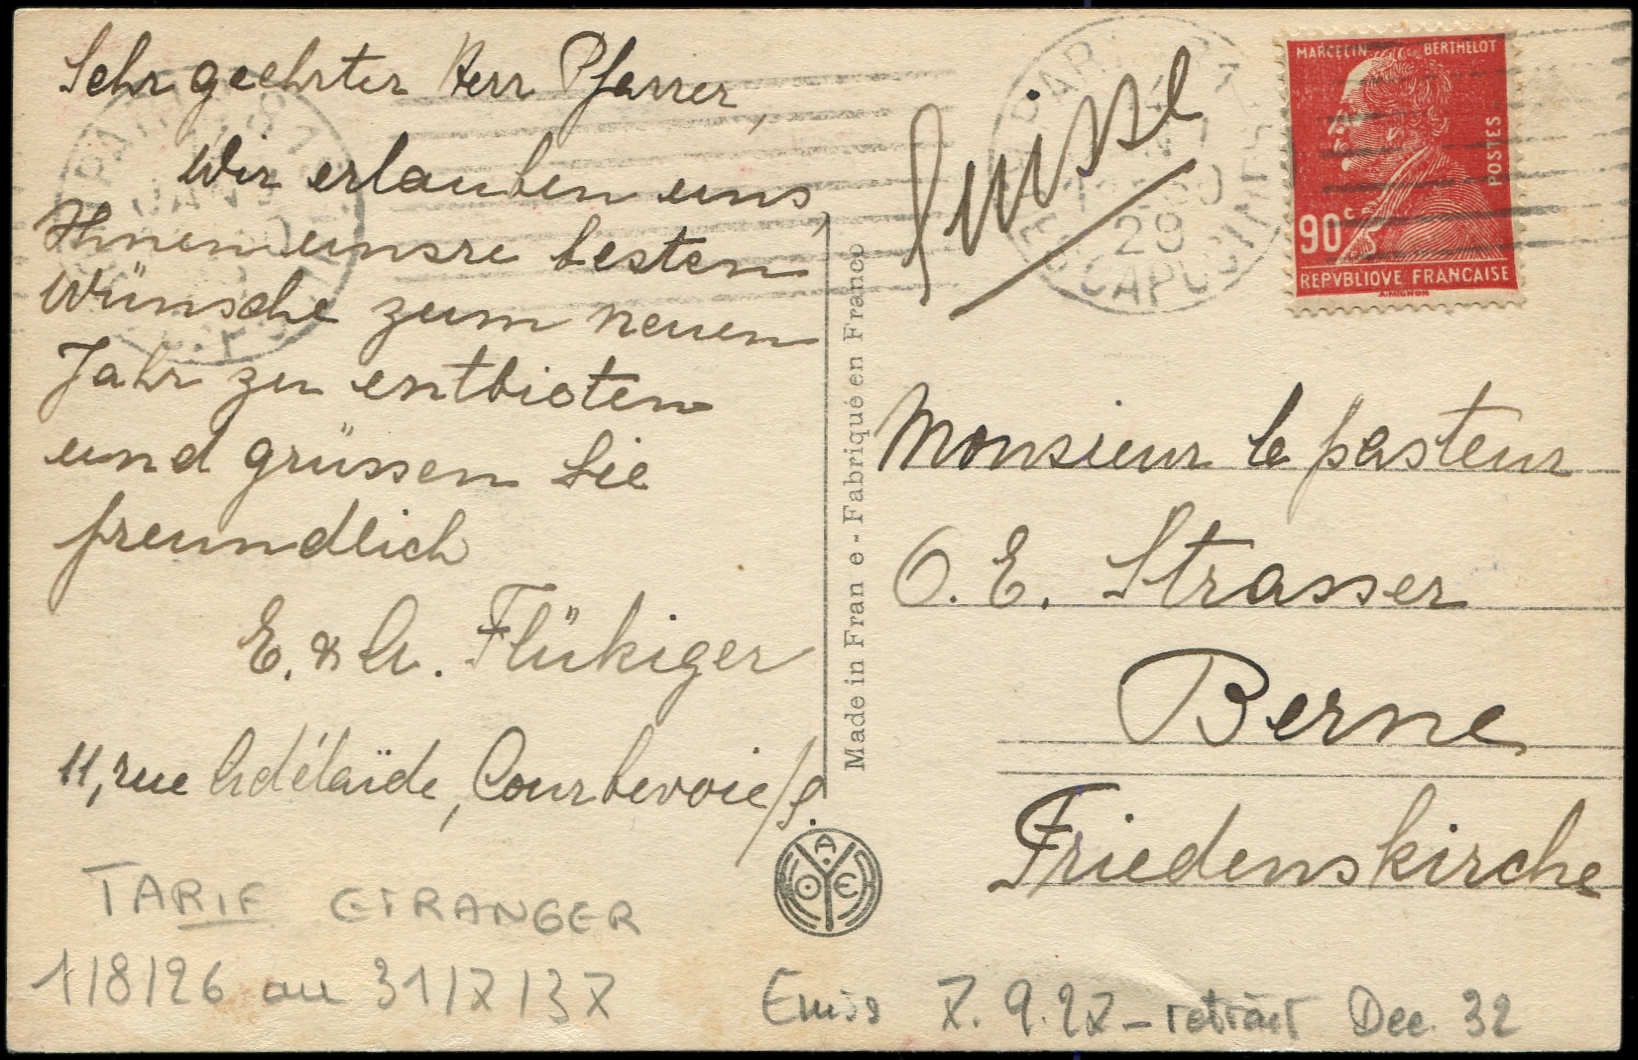 Sehr geehrter Herr Pfarrer,
Wir erlauben uns,
Ihnen unsre besten
Wünsche zum neuen
Jahr zu entbieten
und grüssen Sie
freundlich
E. & A. Flükiger
11, rue Adélaïde, Courbevoie/S.
TARIF ETRANGER
1/8/26 au 31/7/37
Made in Fran e - Fabriqué en France
A O E
Suisse
MARCELIN BERTHELOT
POSTES
90 c
REPVBLIQVE FRANÇAISE
A. MIGNON
29
CAPUCINES
Monsieur le pasteur
O. E. Strasser
Berne
Friedenskirche
Emis 7. 9. 27 - retrait Dec. 32